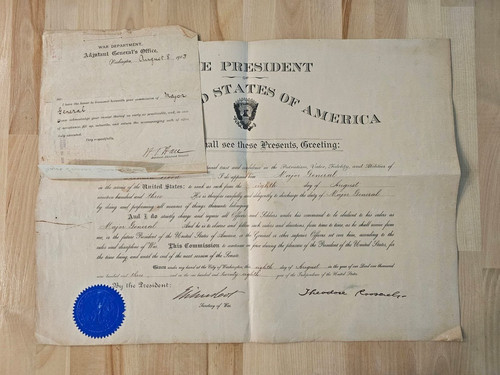 WAR DEPARTMENT,
Adjutant General's Office,
Washington, August 8, 1903
I have the honor to transmit herewith your commission of Major
General
Very respectfully,
E PRESIDENT
D STATES OF AMERICA
hall see these Presents, Greeting:
I do appoint Major General
in the army of the United States: to rank as such from the eighth day of August
nineteen hundred and three. He is therefore carefully and diligently to discharge the duty of Major General
by doing and performing all manner of things thereunto belonging.
And I do strictly charge and require all Officers and Soldiers under his command to be obedient to his orders as
Major General. And he is to observe and follow such orders and directions, from time to time, as he shall receive from
me, or the future President of the United States of America, or the General or other superior Officers set over him, according to the
rules and discipline of War. This Commission to continue in force during the pleasure of the President of the United States, for
the time being, and until the end of the next session of the Senate.
Given under my hand at the City of Washington, this eighth day of August, in the year of our Lord one thousand
nine hundred and three, and in the one hundred and twenty-eighth year of the Independence of the United States.
By the President:
Theodore Roosevelt
Secretary of War.